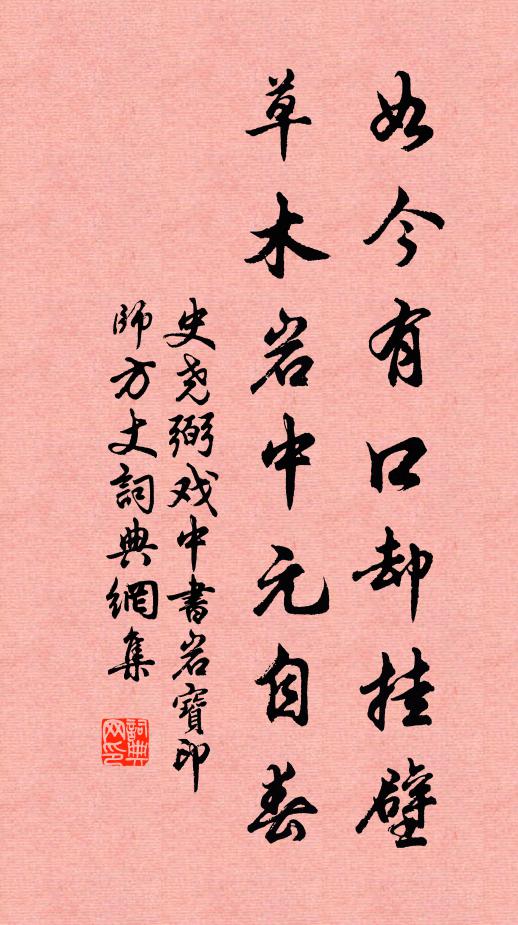 如今有口却挂壁
草木岩中元自春
史尧弼戏中书岩寶印
師方丈詞典網集
詞典网印